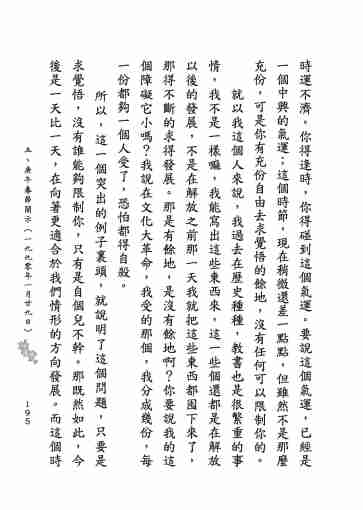 時運不濟。你得逢時，你得碰到這個氣運。要說這個氣運，已經是
一個中興的氣運；這個時節，現在稍微還差一點點，但雖然不是那麼
充份，可是你有充份自由去求覺悟的餘地，沒有任何可以限制你的。
就以我這個人來說，我過去在歷史種種，教書也是很繁重的事
情，我不是一樣嘛，我能寫出這些東西來，這一些個還都是在解放
以後的發展，不是在解放之前那一天我就把這些東西都囤下來了，
那得不斷的求得發展。那是有餘地，是沒有餘地啊？你要說我的這
個障礙它小嗎？我說在文化大革命，我受的那個，我分成幾份，每
一份都夠一個人受了，恐怕都得自殺。
所以，這一個突出的例子裏頭，就說明了這個問題，只要是
求覺悟，沒有誰能夠限制你，只有是自個兒不幹。那既然如此，今
後是一天比一天，在向著更適合於我們情形的方向發展。而這個時
五、庚午春節開示（一九九零年一月廿九日）
195